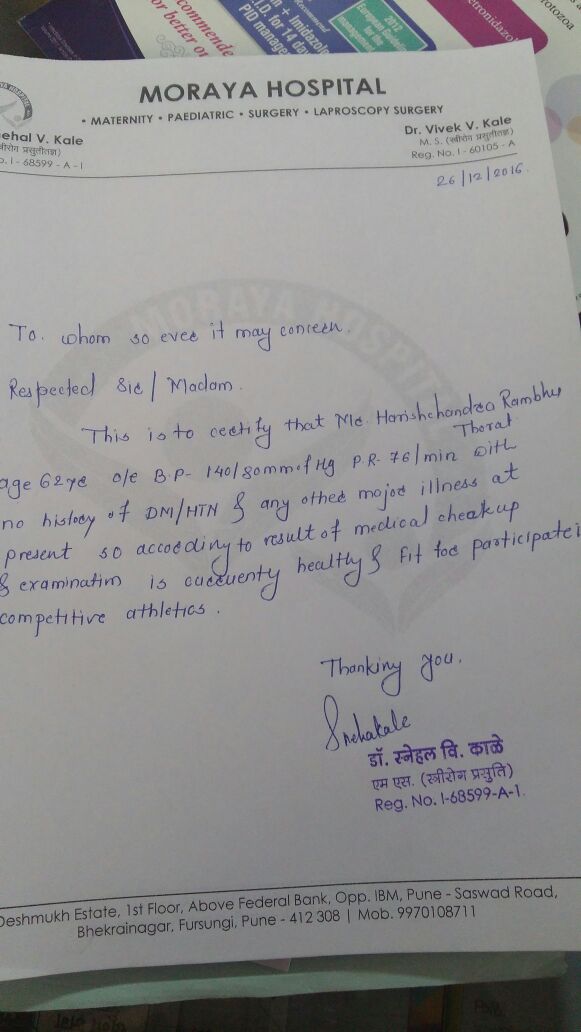 commende
or better or
n + imidazol
I.D for 14 da
PID manage
2012
European Guideline
for the
management
etronidazo
rotozoa
MORAYA HOSPITAL
• MATERNITY • PAEDIATRIC • SURGERY • LAPROSCOPY SURGERY
ehal V. Kale
स्त्रीरोग प्रसुतीतज्ञ)
o. I - 68599 - A - I
Dr. Vivek V. Kale
M. S. (स्त्रीरोग प्रसुतीतज्ञ)
Reg. No. I - 60105 - A
26/12/2016.
MORAYA HOSPITAL
To. whom so ever it may concern.
Respected Sir / Madam.
This is to certify that Mr. Harishchandra Rambhu
Thorat
age 62yr o/e B.P- 140/80mm of Hg P.R- 76/min with
no history of DM/HTN & any other major illness at
present so according to result of medical cheakup
& examination is currently healthy & fit for participate i
competitive athletics.
Thanking you.
Snehakale
डॉ. स्नेहल वि. काळे
एम एस. (स्त्रीरोग प्रसुति)
Reg. No. I-68599-A-1.
Deshmukh Estate, 1st Floor, Above Federal Bank, Opp. IBM, Pune - Saswad Road,
Bhekrainagar, Fursungi, Pune - 412 308 | Mob. 9970108711